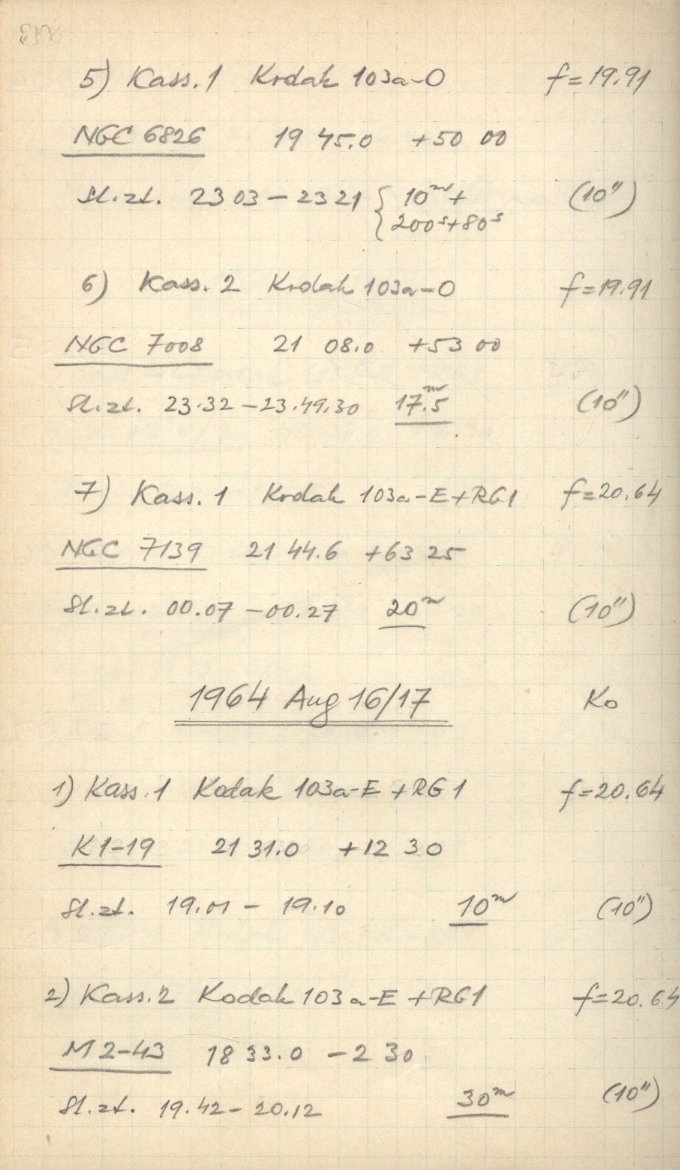 5) Kass. 1 Kodak 103a-O f=19.91
NGC 6826 19 45.0 +50 00
St.zt. 23 03 – 23 21 { 10ᵐ + (10")
200ˢ+80ˢ
6) Kass. 2 Kodak 103a-O f=19.91
NGC 7008 21 08.0 +53 00
St.zt. 23.32 – 23.49.30 17.5ᵐ (10")
7) Kass. 1 Kodak 103a-E+RG1 f=20.64
NGC 7139 21 44.6 +63 25
St.zt. 00.07 – 00.27 20ᵐ (10")
1964 Aug 16/17 Ko
1) Kass. 1 Kodak 103a-E +RG1 f=20.64
K1-19 21 31.0 +12 30
St.zt. 19.01 – 19.10 10ᵐ (10")
2) Kass. 2 Kodak 103a-E +RG1 f=20.64
M2-43 18 33.0 –2 30
St.zt. 19.42 – 20.12 30ᵐ (10")